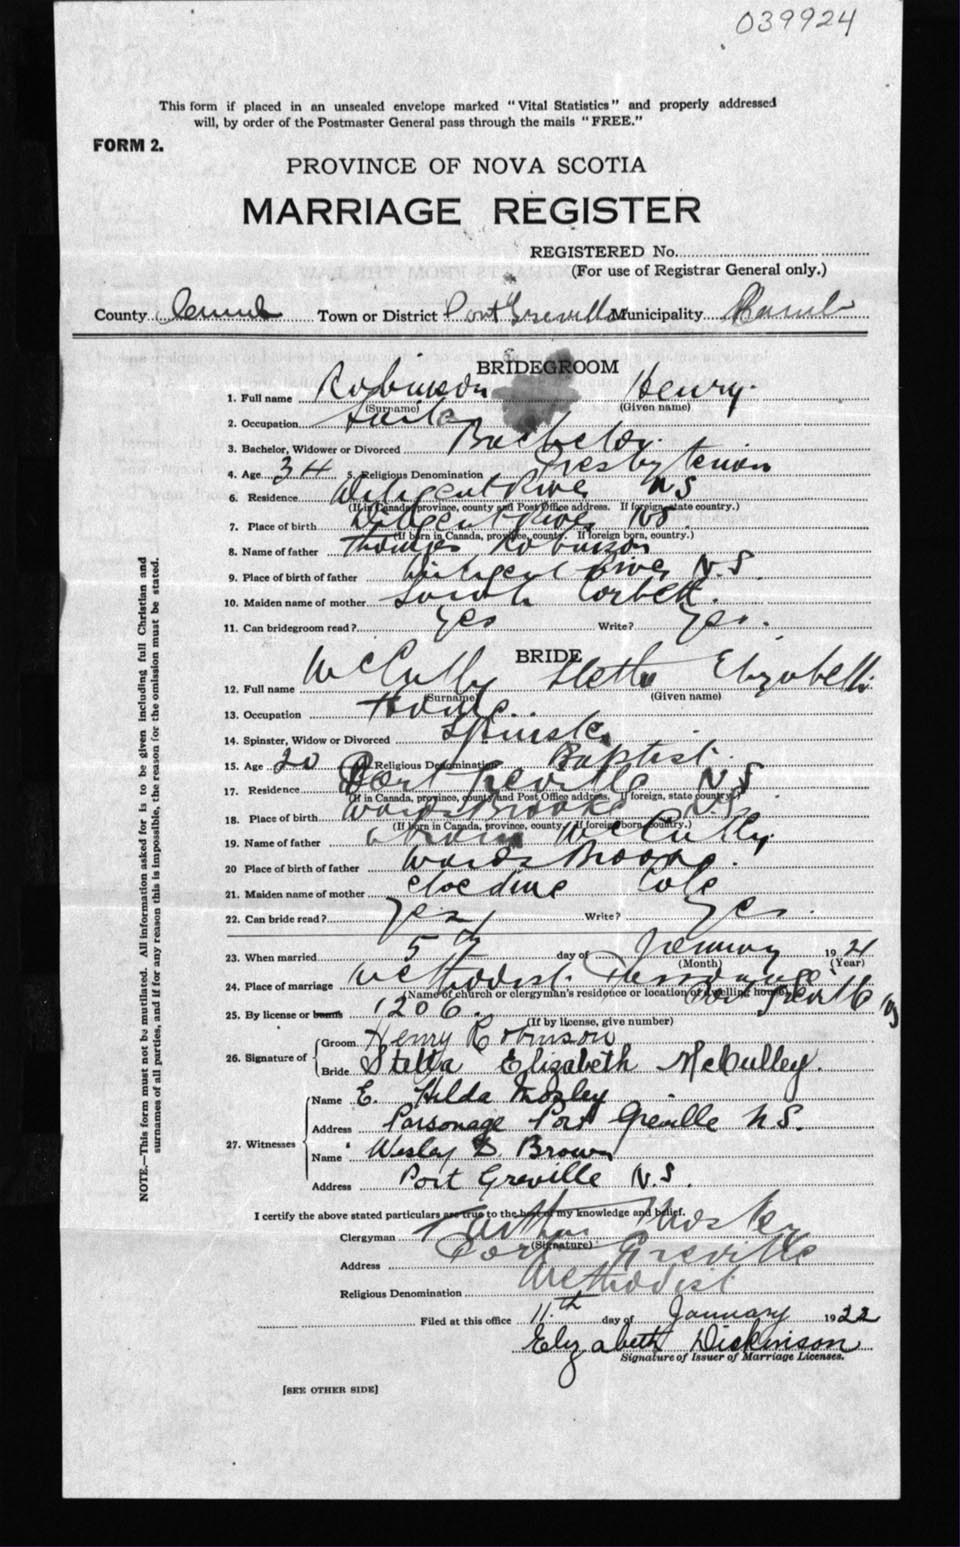 039924
This form if placed in an unsealed envelope marked "Vital Statistics" and properly addressed
will, by order of the Postmaster General pass through the mails "FREE."
FORM 2.
PROVINCE OF NOVA SCOTIA
MARRIAGE REGISTER
REGISTERED No.
(For use of Registrar General only.)
County Town or District Port Greville Municipality
BRIDEGROOM
1. Full name Robinson Henry
(Surname) (Given name)
2. Occupation
3. Bachelor, Widower or Divorced Bachelor
4. Age 34 5. Religious Denomination Presbyterian
6. Residence Diligent River N S
(If in Canada, province, county and Post Office address. If foreign, state country.)
7. Place of birth Diligent River NS
(If born in Canada, province, county. If foreign born, country.)
8. Name of father Thomas Robinson
9. Place of birth of father Diligent River N.S.
10. Maiden name of mother Sarah Corbett.
11. Can bridegroom read? Yes Write? Yes.
BRIDE
12. Full name McCully Stella Elizabeth
(Surname) (Given name)
13. Occupation Home
14. Spinster, Widow or Divorced Spinster
15. Age 20 Religious Denomination Baptist
17. Residence Port Greville N S
(If in Canada, province, county and Post Office address. If foreign, state country.)
18. Place of birth Wards Brook
(If born in Canada, province, county. If foreign born, country.)
19. Name of father McCully
20 Place of birth of father Wards Brook.
21. Maiden name of mother Cole
22. Can bride read? Yes Write? Yes.
23. When married 5th day of January 192
(Month) (Year)
24. Place of marriage Methodist Parsonage Port Greville NS
(Name of church or clergyman's residence or location of dwelling house)
25. By license or banns 1206.
(If by license, give number)
26. Signature of Groom Henry Robinson
Bride Stella Elizabeth McCulley.
27. Witnesses Name E. Hilda Mosley
Address Parsonage Port Greville N.S.
Name Wesley D. Brown
Address Port Greville N.S.
I certify the above stated particulars are true to the best of my knowledge and belief.
Clergyman Arthur
(Signature)
Address Port Greville
Religious Denomination Methodist
Filed at this office 11th day of January 1922
Elizabeth Dickinson
Signature of Issuer of Marriage Licenses.
[SEE OTHER SIDE]
NOTE.—This form must not be mutilated. All information asked for is to be given including full Christian and
surnames of all parties, and if for any reason this is impossible, the reason for the omission must be stated.